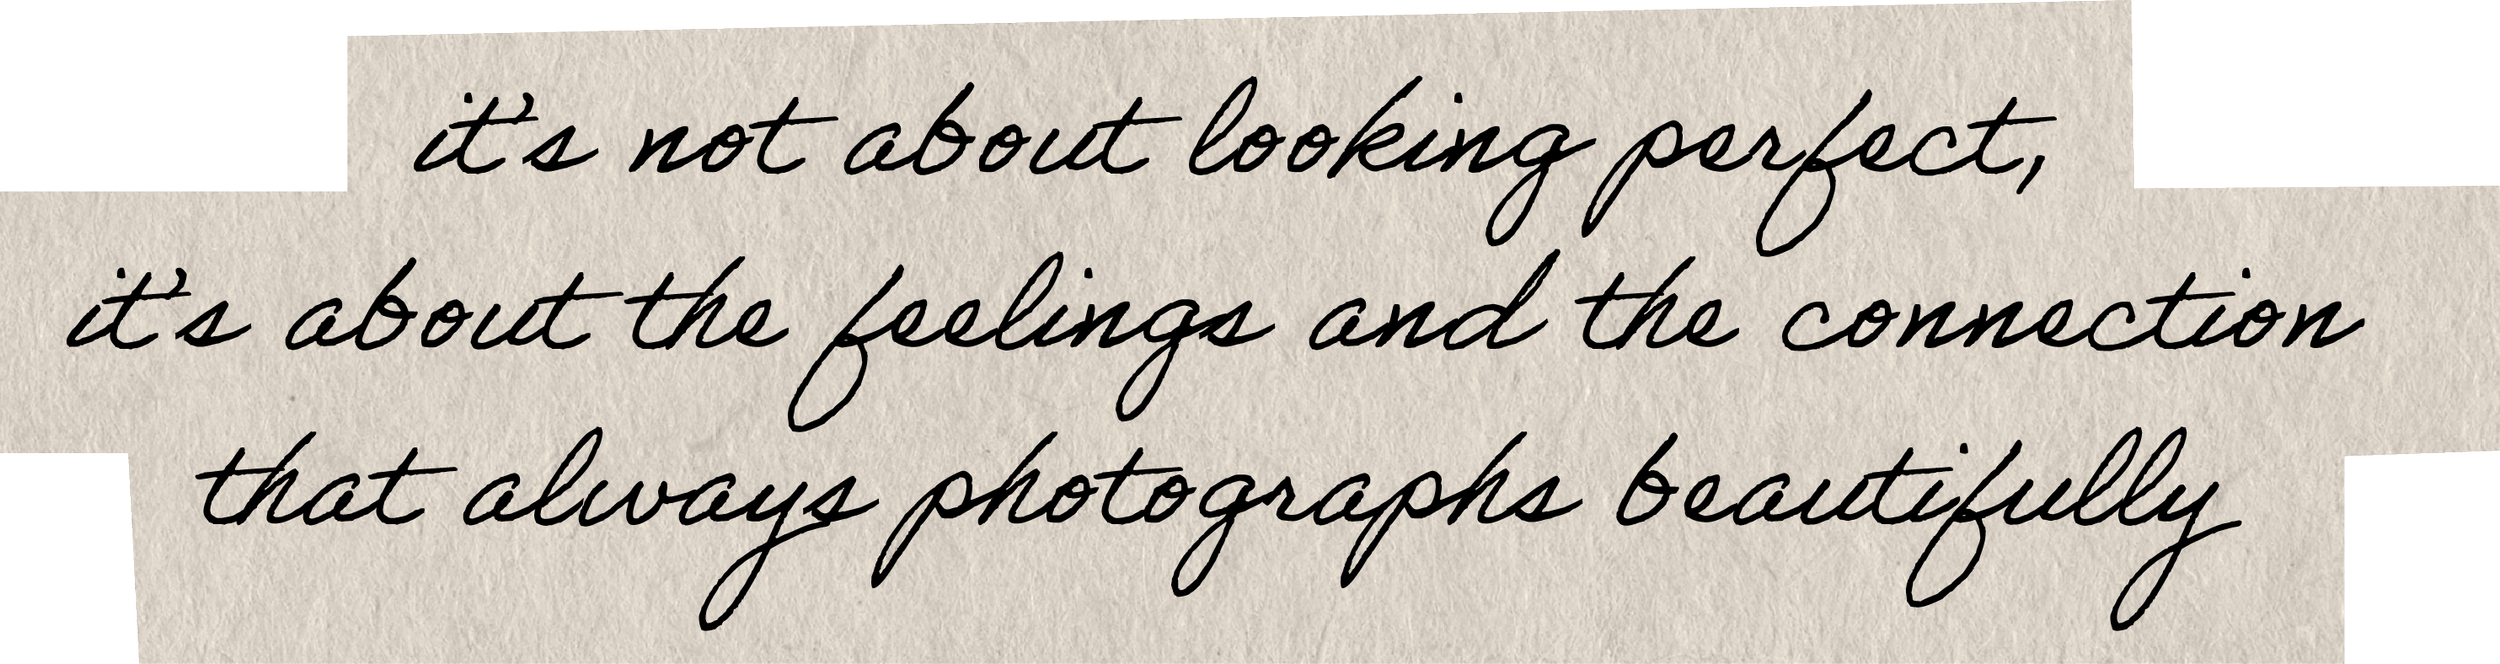 it's not about looking perfect,
it's about the feelings and the connection
that always photographs beautifully